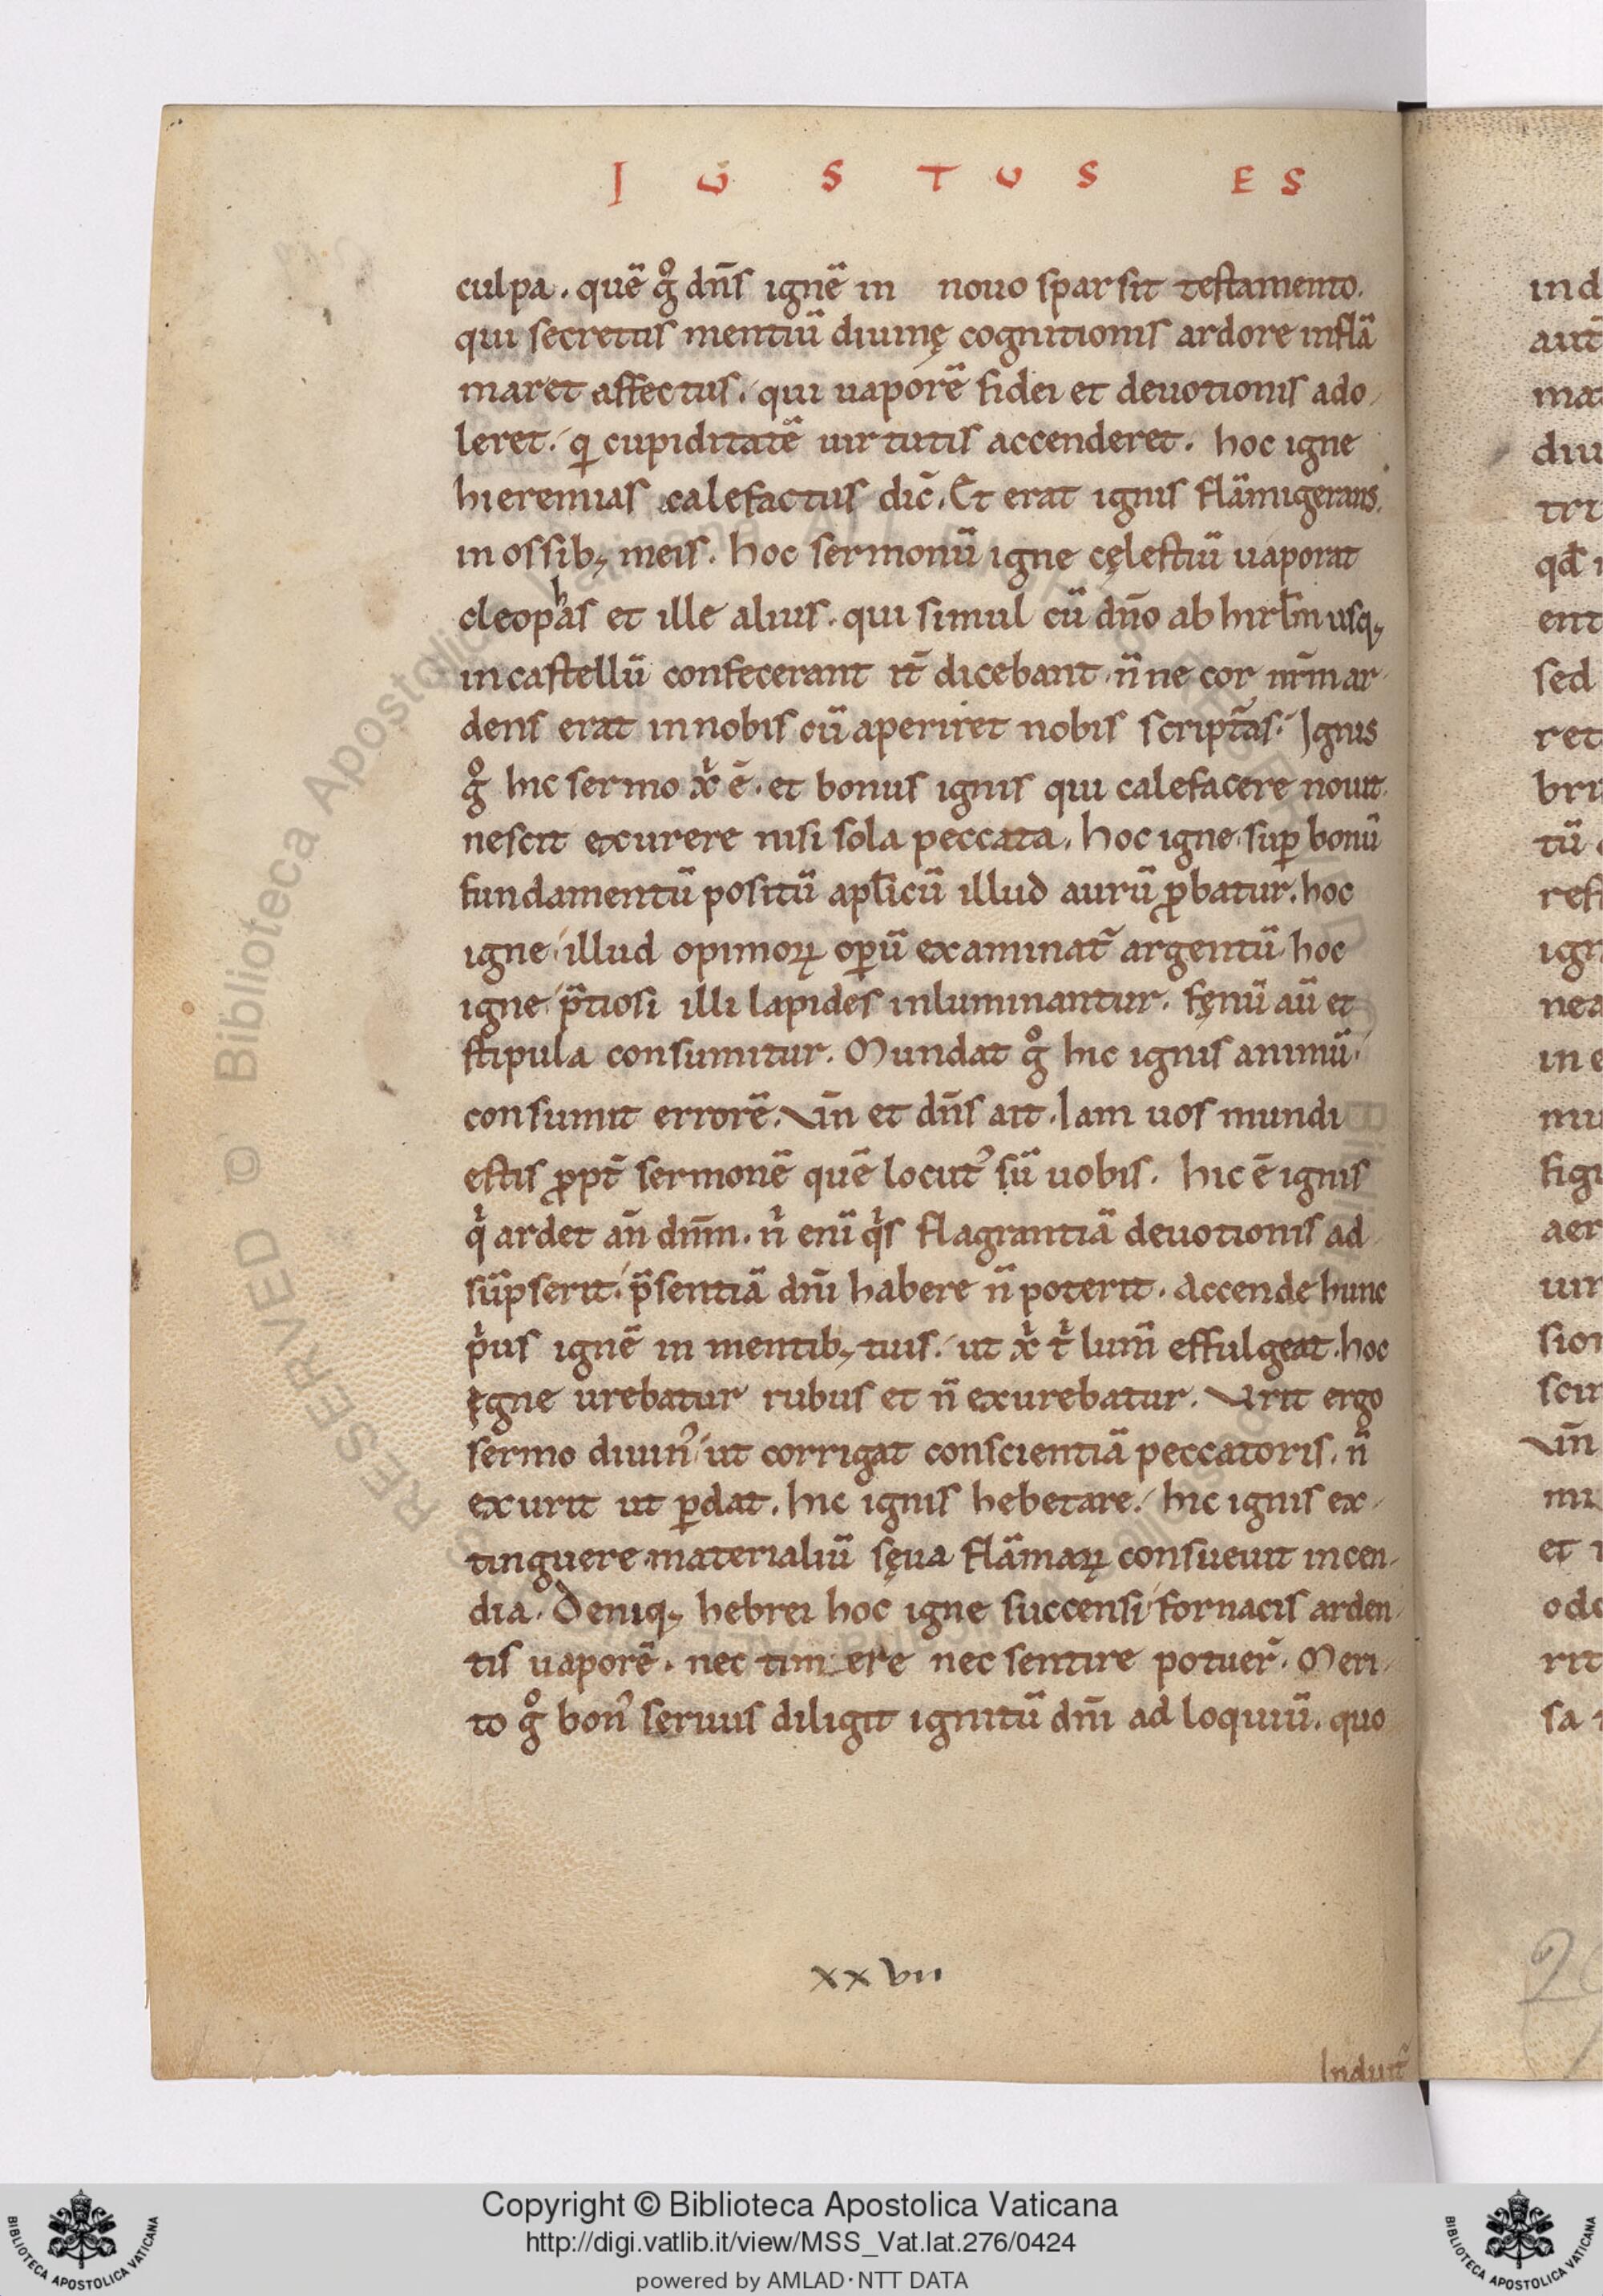 I U S T U S E S
culpa. quē g̊ dn̄s ignē in nouo sparsit testamento.
qui secretus mentiū diuinę cognitionis ardore inflā
maret affectus. qui uaporē fidei et deuotionis ado
leret. q̄ cupiditatē uirtutis accenderet. hoc igne
hieremias calefactus dic̄. Et erat ignis flāmigerans.
in ossib; meis. hoc sermonū igne cęlestiū uaporat
cleophas et ille alius. qui simul cū dn̄o ab hirl̄m usq;
in castellū confecerant it̄ dicebant. n̄ne cor nr̄m ar
dens erat in nobis cū aperiret nobis script̄as. Ignis
g̊ hic sermo xͥ ē. et bonus ignis qui calefacere nouit.
nescit excurere nisi sola peccata. hoc igne sup̄ bonū
fundamentū positū apl̄icū illud aurū ꝓbatur. hoc
igne illud opimoꝝ oꝑū examinat̄ argentū hoc
igne p̄tiosi illi lapides inluminantur. fęnū aū et
stipula consumitur. Mundat g̊ hic ignis animū.
consumit errorē. Vn̄ et dn̄s ait. Iam uos mundi
estis ꝓpt̄ sermonē quē locut᾿ sū uobis. hic ē ignis
qͥ ardet an̄ dnm̄. nͥ enī qͥs flagrantiā deuotionis ad
sūpserit. p̄sentiā dn̄i habere n̄ poterit. Accende hunc
pͥus ignē in mentib; tuis. ut xͥ tͥ lum̄ effulgeat. hoc
igne urebatur rubus et n̄ exurebatur. Vrit ergo
sermo diuin᾿ ut corrigat conscientiā peccatoris. n̄
exurit ut ꝑdat. hic ignis hebetare. hic ignis ex
tinguere materialiū sęua flāmaꝝ consueuit incen
dia. Deniq; hebrei hoc igne succensi fornacis arden
tis uaporē. nec timere nec sentire potuer̄. Meri
to g̊ bon᾿ seruus diligit ignitū dn̄i adloquiū. quo
xxvii
Indu
ind
aut̄
mat
diu
tri
qd̄
ent
sed
ret
bri
tū
ref
ign
nea
in e
mu
figu
aer
uir
sion
scin
Vn̄
mi
et
odo
rit
sa
Copyright © Biblioteca Apostolica Vaticana
http://digi.vatlib.it/view/MSS_Vat.lat.276/0424
powered by AMLAD·NTT DATA